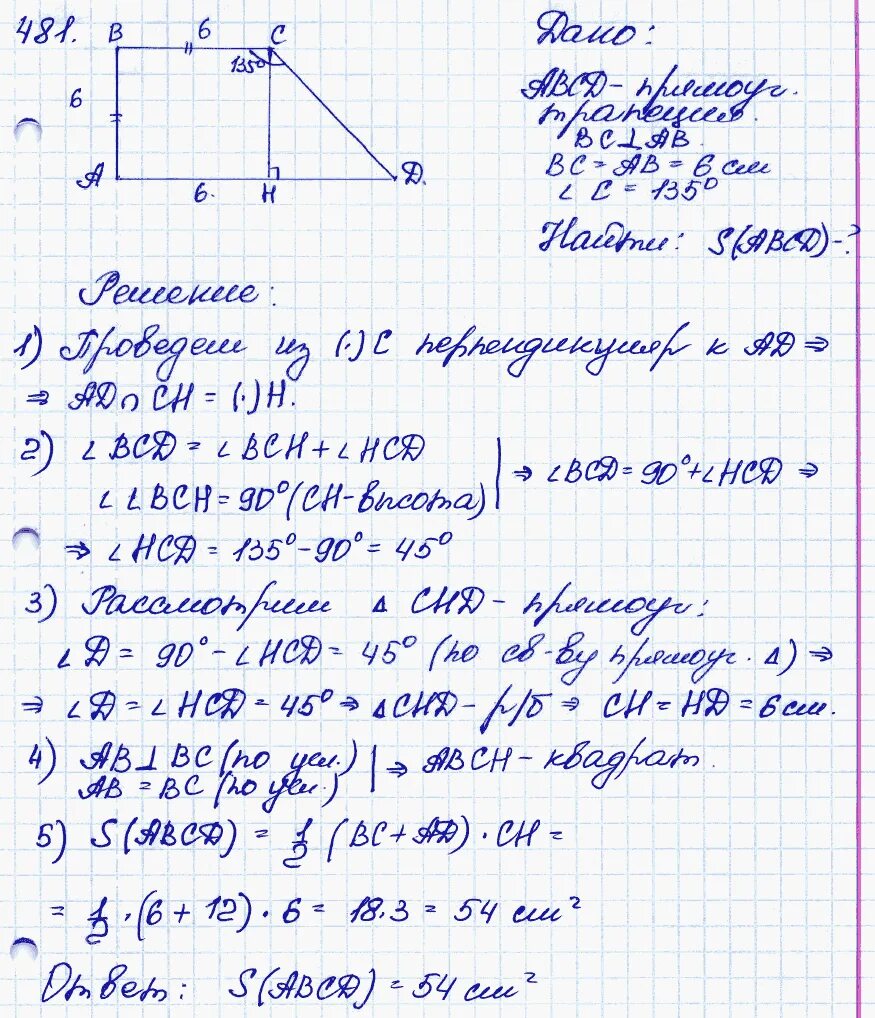 481.
B 6 C
135°
6
A 6. H D.
Дано:
ABCD – прямоуг.
трапеция.
BC⊥AB.
BC = AB = 6 см
∠ C = 135°
Найти: S(ABCD)-?
Решение:
1) Проведем из (·)C перпендикуляр к AD ⇒
⇒ AD∩CH = (·)H.
2) ∠BCD = ∠BCH + ∠HCD
∠∠BCH = 90° (CH-высота) | ⇒ ∠BCD = 90° + ∠HCD ⇒
⇒ ∠HCD = 135° – 90° = 45°
3) Рассмотрим △ CHD – прямоуг:
∠D = 90° – ∠HCD = 45° (по св-ву прямоуг. △) ⇒
⇒ ∠D = ∠HCD = 45° ⇒ △CHD – р/б ⇒ CH = HD = 6 см.
4) AB⊥BC (по усл.) | ⇒ ABCH – квадрат.
AB = BC (по усл.)
5) S(ABCD) = 1/2 (BC + AD) · CH =
= 1/2 · (6 + 12) · 6 = 18·3 = 54 см²
Ответ: S(ABCD) = 54 см²